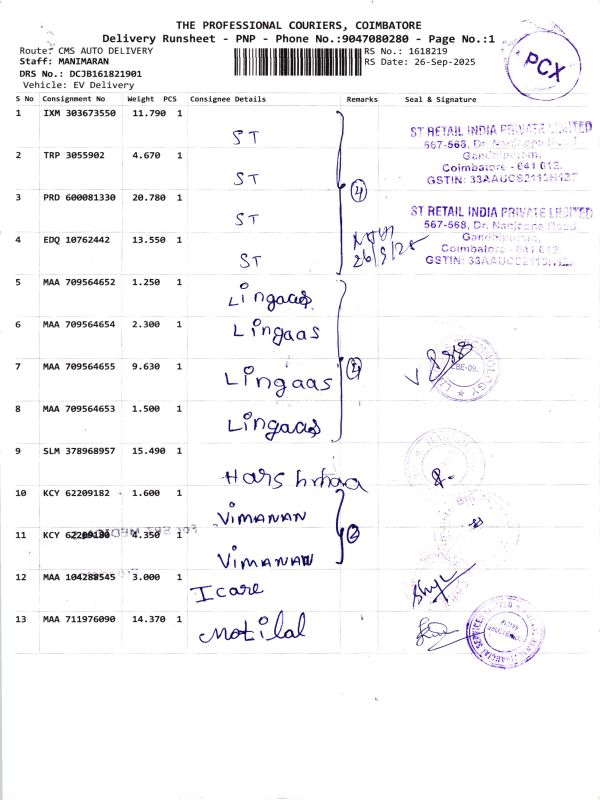 THE PROFESSIONAL COURIERS, COIMBATORE
Delivery Runsheet - PNP - Phone No.:9047080280 - Page No.:1
Route: CMS AUTO DELIVERY
RS No.: 1618219
Staff: MANIMARAN
RS Date: 26-Sep-2025
DRS No.: DCJB161821901
Vehicle: EV Delivery
PCX
S No Consignment No Weight PCS Consignee Details Remarks Seal & Signature
1 IXM 303673550 11.790 1 ST
2 TRP 3055902 4.670 1 ST
3 PRD 600081330 20.780 1 ST
4 EDQ 10762442 13.550 1 ST
4
26/9/25
ST RETAIL INDIA PRIVATE LIMITED
567-568, Dr. Nanjappa Road
Gandhipuram,
Coimbatore - 641 012.
ST RETAIL INDIA PRIVATE LIMITED
567-568, Dr. Nanjappa Road
Gandhipuram,
Coimbatore - 641 012.
5 MAA 709564652 1.250 1 Lingaas
6 MAA 709564654 2.300 1 Lingaas
7 MAA 709564655 9.630 1 Lingaas
8 MAA 709564653 1.500 1 Lingaas
4
9 SLM 378968957 15.490 1
10 KCY 62209182 1.600 1 VIMANAN
11 KCY 62209180 4.350 1 VIMANAN
2
12 MAA 104288545 3.000 1 Icare
13 MAA 711976090 14.370 1 Motilal